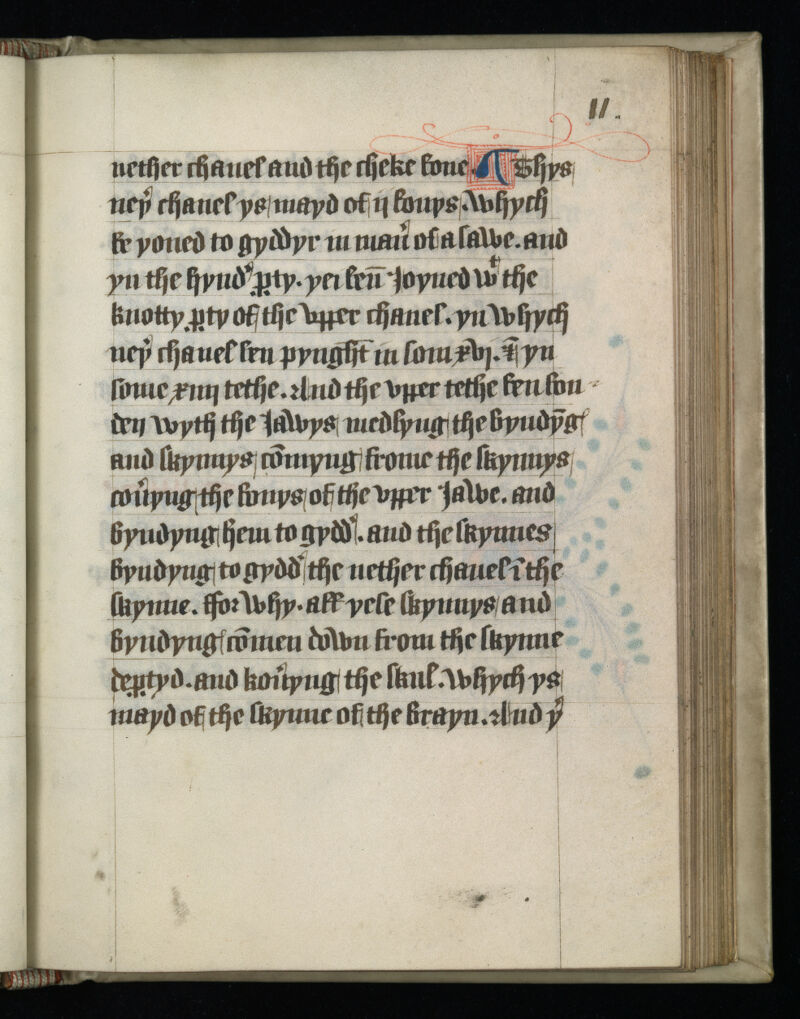 11.
nether chauel and the cheke bone. ¶ Thys
neþ̉ chauel ys mayd of ij bonys. Whych
be yoned to gyddyr in man̉ of a sawe. and
yn the hynd̉ ꝑty. yei ben̄ Joyned wᵗ the
knotty ꝑty of the vpper chauel. yn Whych
neþ̉ chauel ben pynght in som xvj. & yn
some xiiij tethe. And the vpper tethe ben bon-
den wyth the Jawys medlyng the byndȳg
and skynnys cōmyng frome the skynnys
coủyng the bonys of the vpper Jawe. and
byndyng hem to gydd̉. and the skynnes
byndyng to gydd̉ the nether chauel ī the
skynne. ffor why. all yese skynnys and
byndyng cōmen down from the skynne
deꝑtyd. and koủyng the skul. Whych ys
mayd of the skynne of the brayn. And þ̉